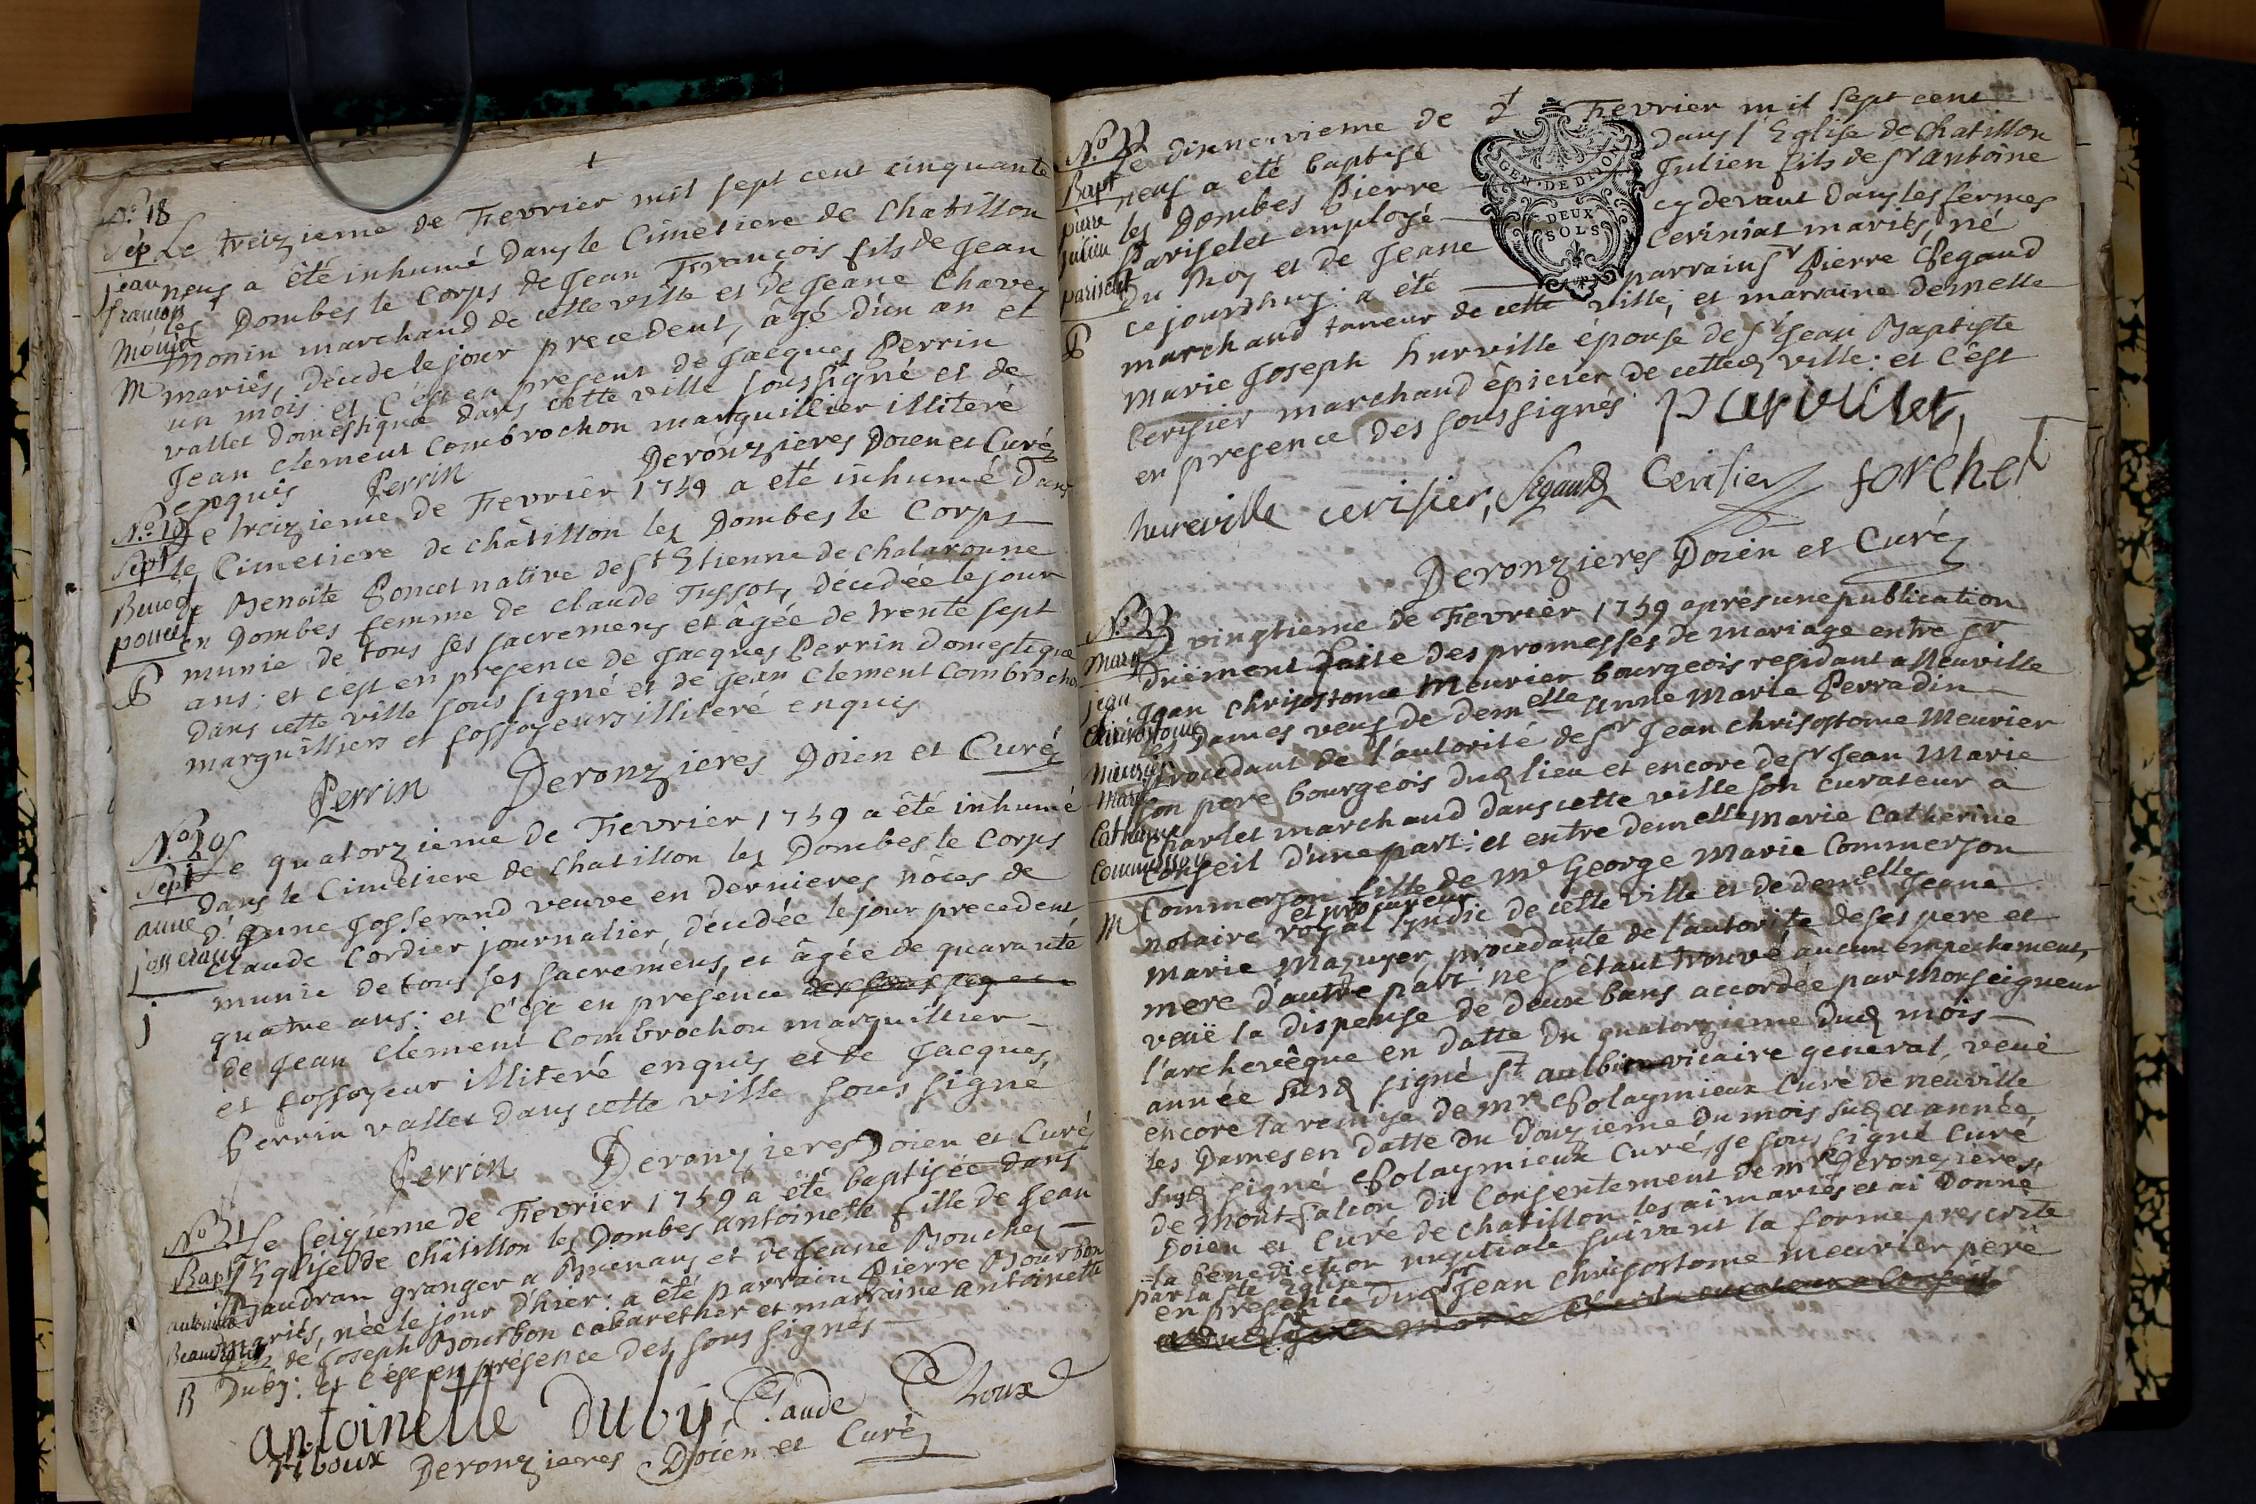 N.° 18
Sép.
jean
françois
Monin
M
Le treizieme de Fevrier mil sept cent cinquante
neuf a été inhumé dans le Cimetiere de Chatillon
les Dombes le Corps de Jean François fils de Jean
Monin marchand de cette ville et de Jeane Chavez
mariés, décédé le jour precedent, âgé d'un an et
un mois: et c'est en present de Jacques Perrin
vallet domestique dans cette ville soussigné et de
Jean Clement Combrochon marguillier illiteré
enquis Perrin Deronzieres Doien et Curé
N.° 19
Sept
Benoite
poncet
B
Le treizieme de Fevrier 1759 a eté inhumé dans
le Cimetiere de châtillon les Dombes le Corps
de Benoîte Poncet native de St Etienne de Chalaronne
en Dombes femme de Claude Tussot, décédée le jour
munie de tous ses sacremens et âgée de trente sept
ans: et c'est en presence de Jacques Perrin Domestique
dans cette ville sous signé et de Jean Clement Combrochon
marguilliers et fossoyeurs illiteré enquis
Perrin Deronzieres Doien et Curé
N.° 20
Sept
anne
josserand
j
Le quatorzieme de Fevrier 1759 a été inhumé
dans le Cimetiere de Chatillon les Dombes le Corps
d'Anne Josserand veuve en dernieres nôces de
Claude Cordier journalier, décédée le jour precedent
munie de tous ses sacremens, et âgée de quarante
quatre ans: et c'est en presence des sous signés
de Jean Clement Combrochon marguillier
et fossoyeur illiteré enquis et de Jacques
Perrin vallet dans cette ville sous signé
Perrin Deronzieres Doien et Curé
N.° 21
Bapt
antoinette
Beaudran
B
Le seizieme de Fevrier 1759 a été baptisée dans
l'Eglise de châtillon les Dombes antoinette fille de Jean
Baudran granger a Brienans et de Jeane Bouchez
mariés, née le jour d'hier: a été parrain Pierre Bourbon
fils de Joseph Bourbon cabarethier et marraine Antoinette
Duby: et c'est en présence des sous signés
antoinette Duby, Claude Choux
riboux Deronzieres Doien et Curé
N.° 22
Bapt
pierre
julien
pariselet
B
Le dixneuvieme de Fevrier mil sept cent
neuf a été baptisé dans l'Eglise de Chatillon
les Dombes Pierre Julien fils de Sr antoine
Pariselet employé cy devant dans les fermes
du Roy et de Jeane Ceriniat mariés, né
ce jourdhuy: a été parrain Sr Pierre Segaud
marchand tanneur de cette ville, et marraine demelle
Marie Joseph hurville épouse de Sr Jean Baptiste
Cerisier marchand épicier de cetted ville: et c'est
en presence des soussignés Pariselet,
hureville cerisier, Segaud Cerisier forchet
Deronzieres Doien et Curé
GEN. DE DIJON
DEUX
SOLS
N.° 23
Mary
jean
chrisostome
Meurier
Marie
Catherine
Commerson
M
Le vingtieme de Fevrier 1759 après une publication
duement faite des promesses de mariage entre Sr
Jean Chrisostome Meurier bourgeois residant a Neuville
les Dames veuf de demelle Anne Marie Perradin
procedant de l'autorité de Sr Jean Chrisostome Meurier
son pere bourgeois dud lieu et encore de Sr Jean Marie
Charlet marchand dans cette ville son curateur a
Conseil d'une part: et entre demelle Marie Catherine
Commerson fille de Me George Marie Commerson
et procureur
notaire royal syndic de cette ville et de demelle Jeane
Marie Mazuyer procedante de l'autorité de ses pere et
mere d'autre part: ne s'étant trouvé aucun empechement,
veüe la dispense de deux bans accordée par Monseigneur
l'archevêque en datte du quatorzieme dud mois
année susd signé St aulbin vicaire general, veüe
encore la remise de Mr Polaymieux Curé de neuville
les Dames en datte du Douzieme du mois susd et année
susd signé Polaymieux Curé, Je sous signé Curé
de Mont falcon du Consentement de Mr Deronzieres
Doien et Curé de chatillon les ai mariés et ai Donné
la benediction nuptiale suivant la forme prescrite
par la Ste Eglise
en presence dud Sr Jean Chrisostome Meurier pere